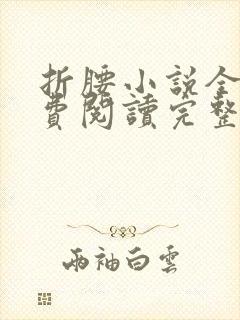 折腰小說全
費閱讀完整
兩袖白雲